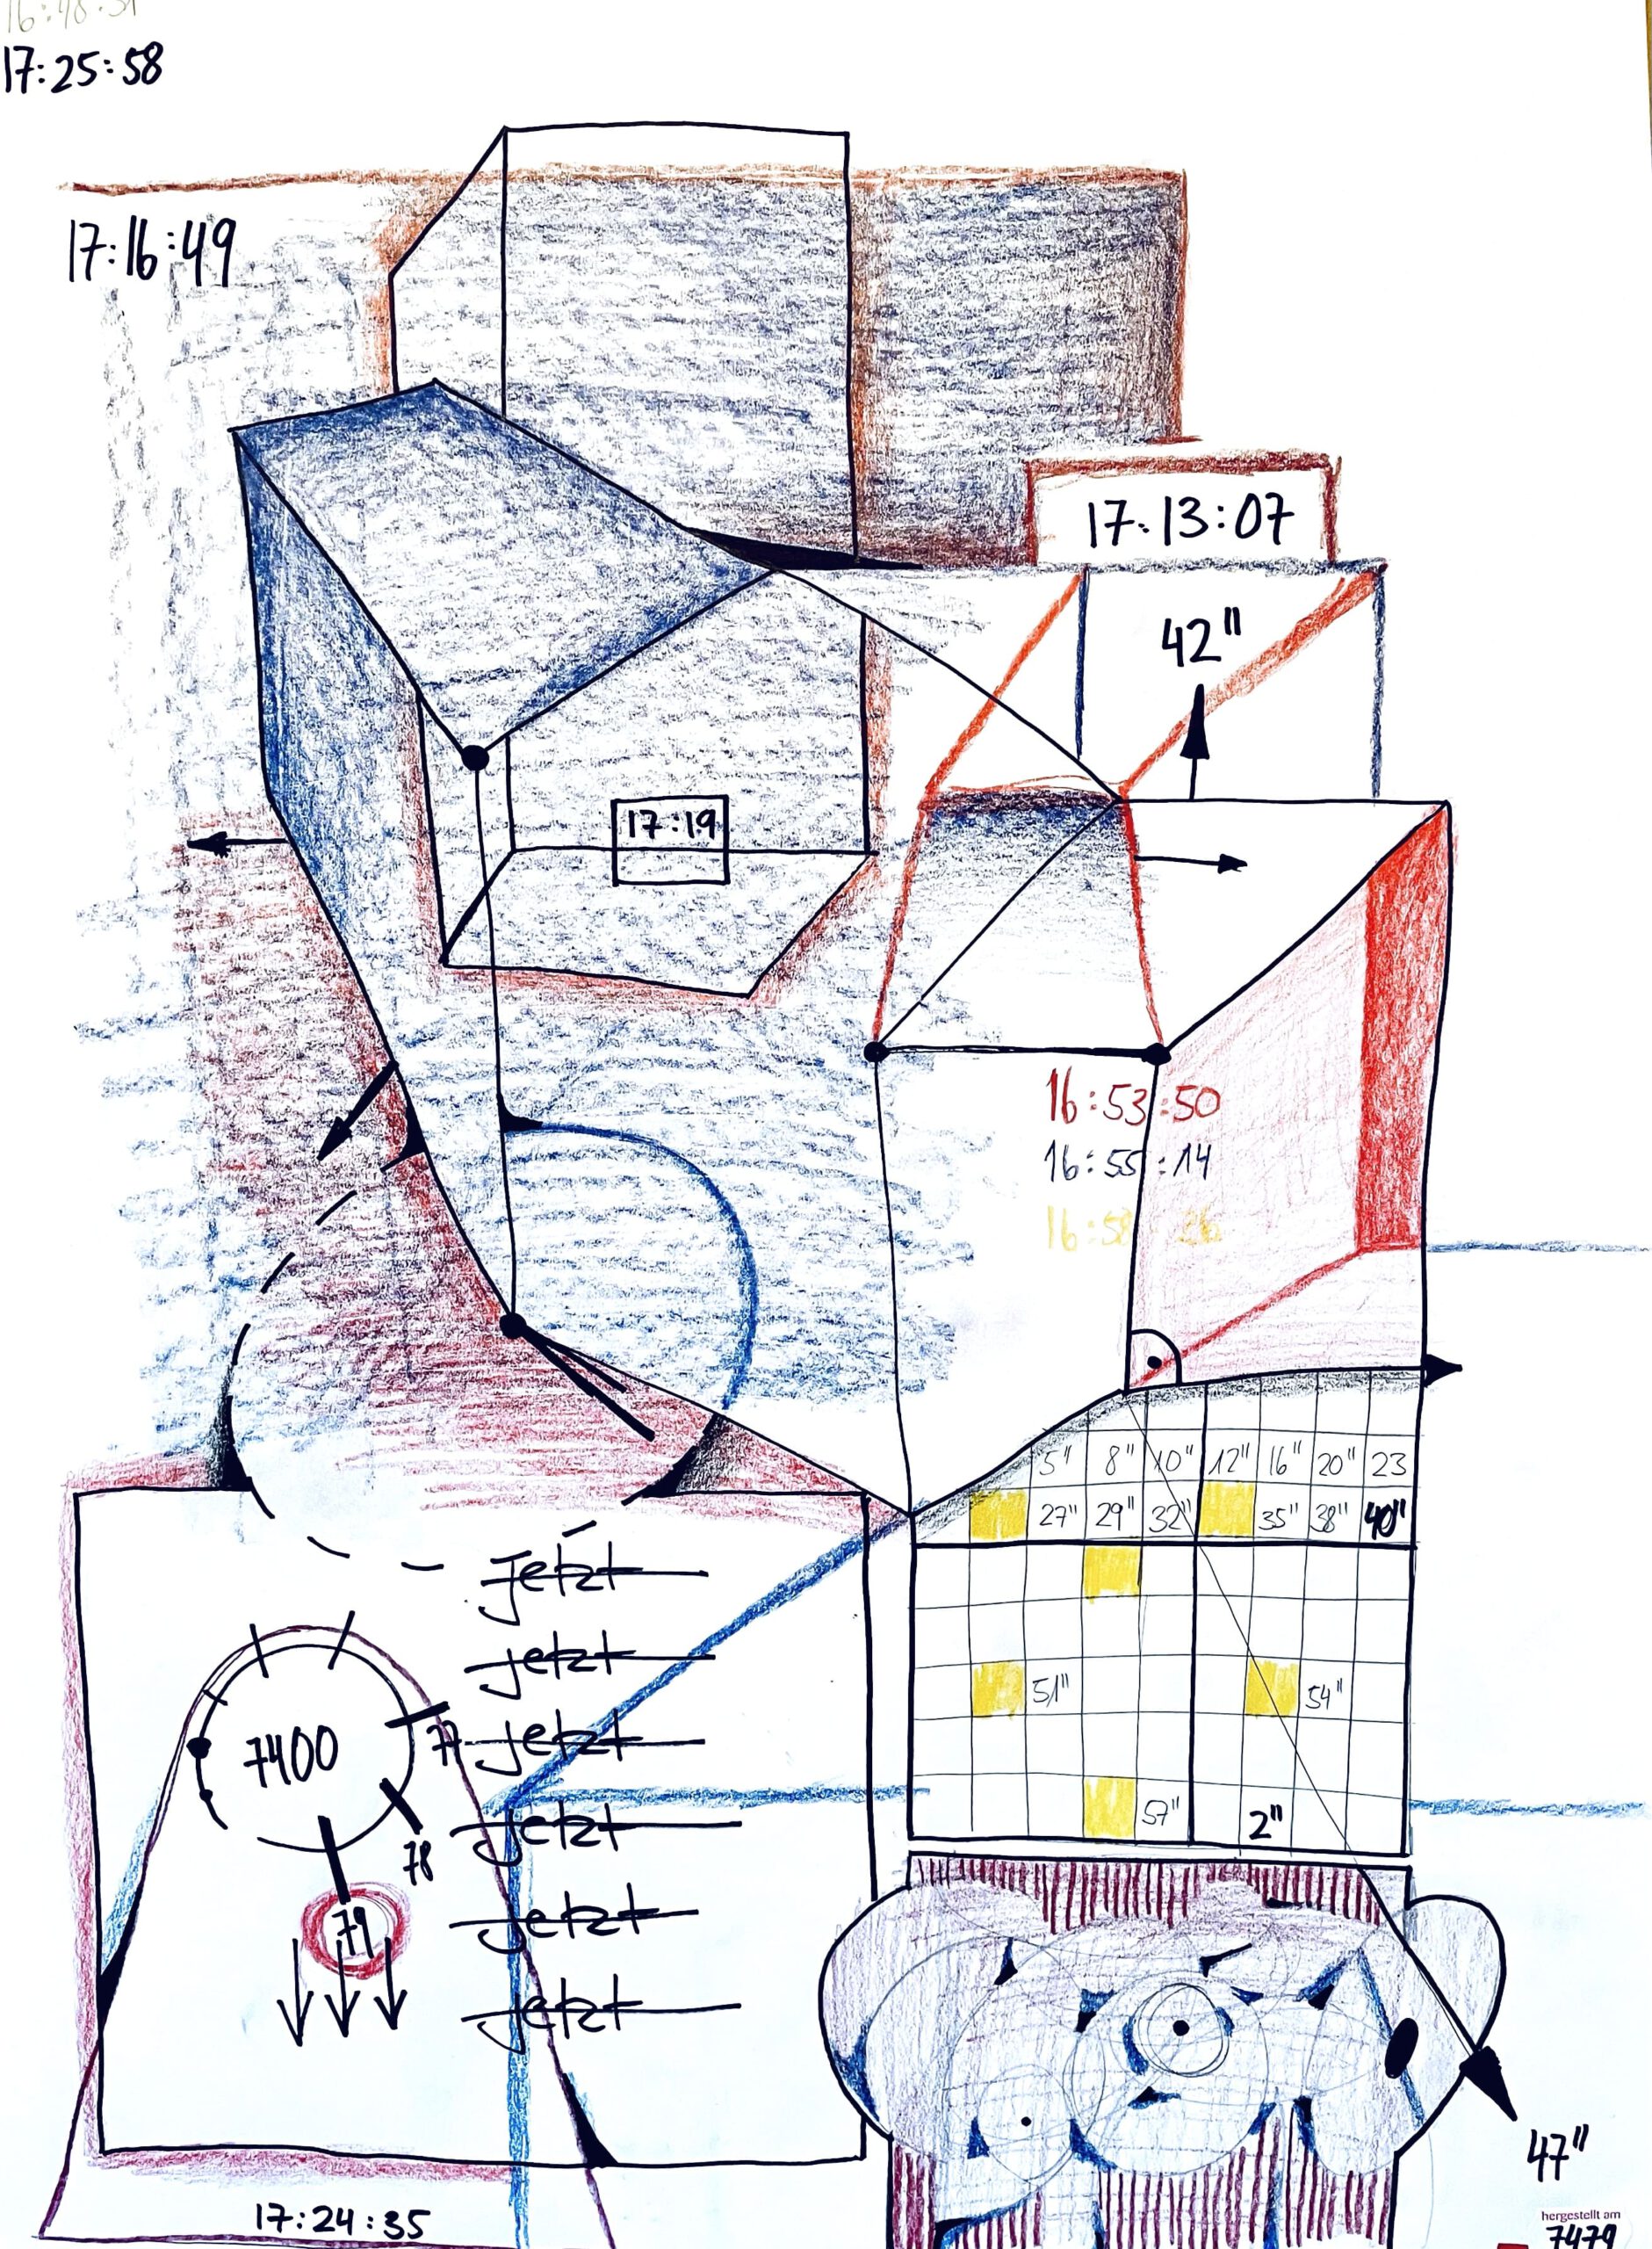 17:25:58
17:16:49
17:13:07
42"
17:19
16:53:50
16:55:14
5" 8" 10" 12" 16" 20" 23
27" 29" 32" 35" 38" 40"
51" 54"
57" 2"
jetzt
jetzt
jetzt
jetzt
jetzt
jetzt
7400
77
78
79
47"
17:24:35
hergestellt am
7479